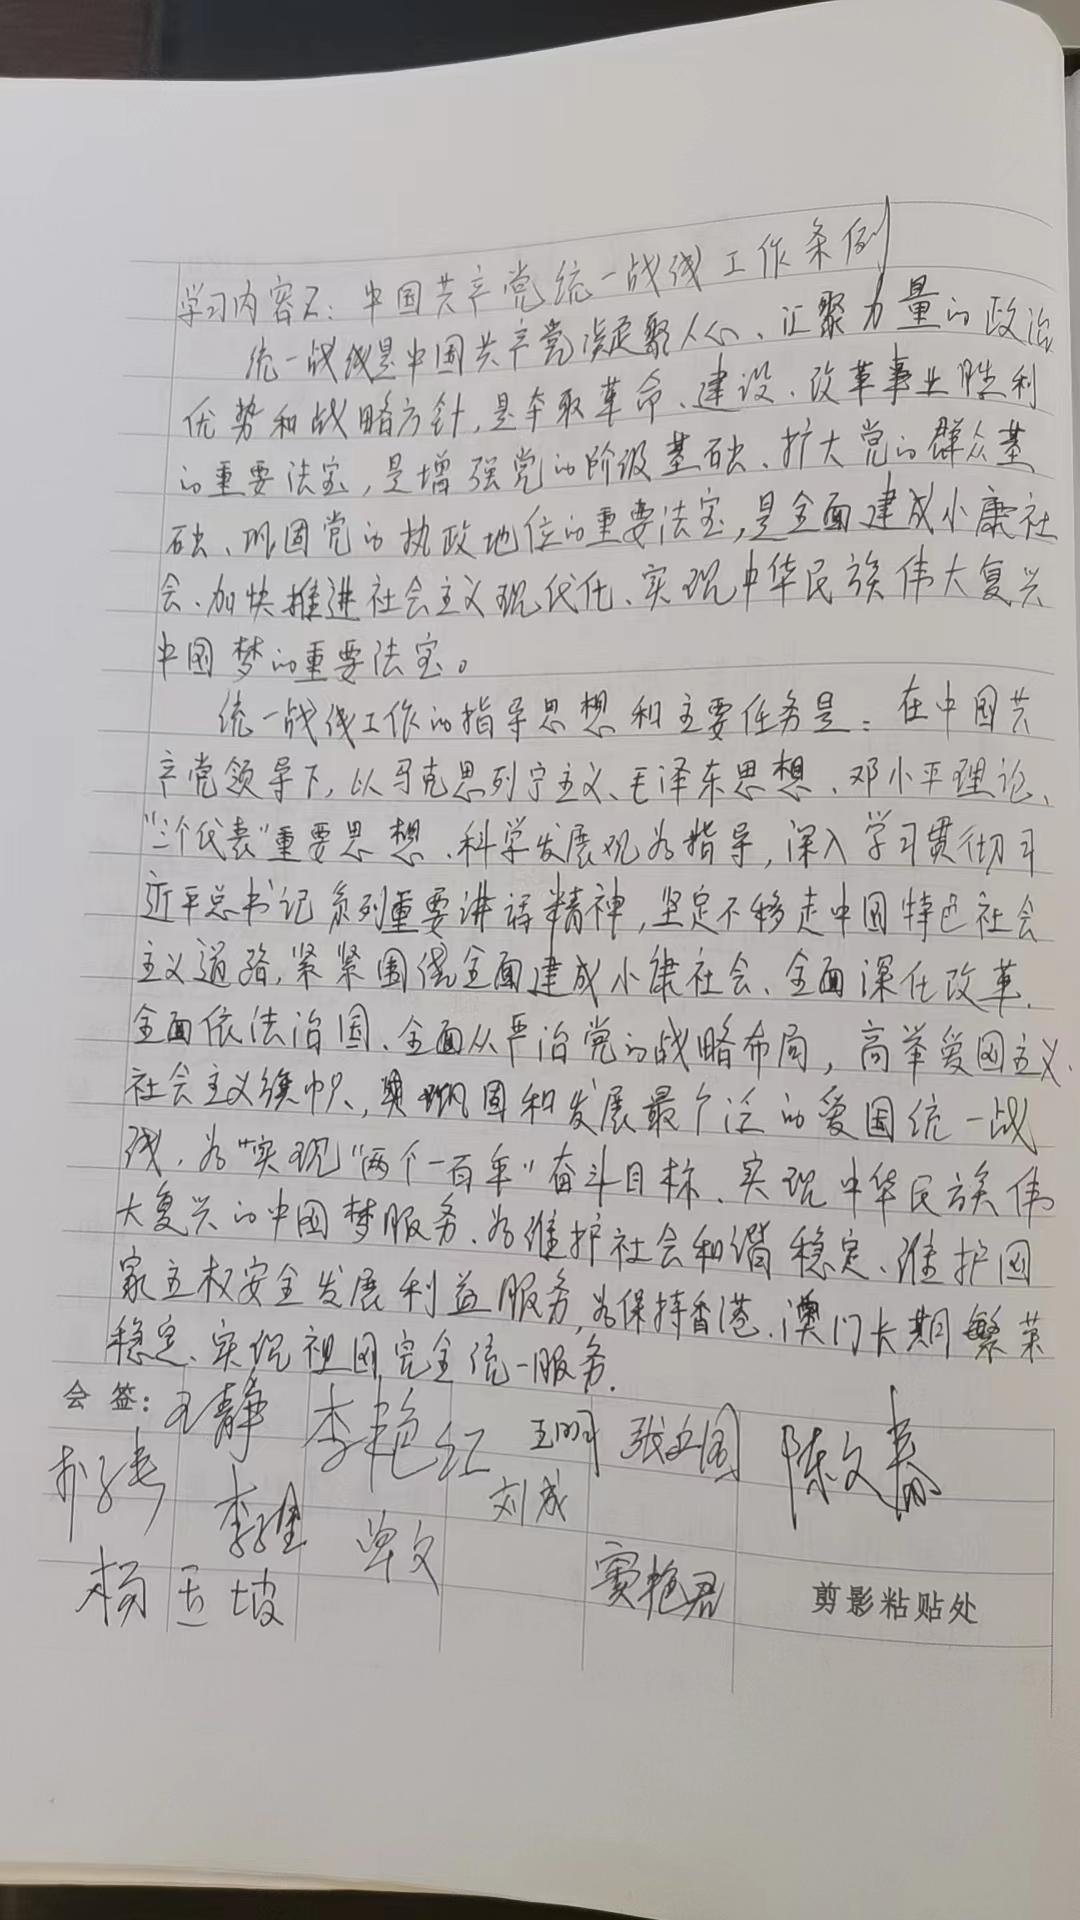 学习内容2：中国共产党统一战线工作条例
统一战线是中国共产党凝聚人心、汇聚力量的政治
优势和战略方针，是夺取革命、建设、改革事业胜利
的重要法宝，是增强党的阶级基础、扩大党的群众基
础、巩固党的执政地位的重要法宝，是全面建成小康社
会、加快推进社会主义现代化、实现中华民族伟大复兴
中国梦的重要法宝。
统一战线工作的指导思想和主要任务是：在中国共
产党领导下，以马克思列宁主义、毛泽东思想、邓小平理论、
“三个代表”重要思想、科学发展观为指导，深入学习贯彻习
近平总书记系列重要讲话精神，坚定不移走中国特色社会
主义道路，紧紧围绕全面建成小康社会、全面深化改革、
全面依法治国、全面从严治党的战略布局，高举爱国主义、
社会主义旗帜，巩固和发展最广泛的爱国统一战
线，为“实现“两个一百年”奋斗目标、实现中华民族伟
大复兴的中国梦服务，为维护社会和谐稳定、维护国
家主权安全发展利益服务，为保持香港、澳门长期繁荣
稳定、实现祖国完全统一服务。
会 签：王静 李艳红 王明 张立国 陈文春
刘成
杨玉坡 窦艳君 剪影粘贴处